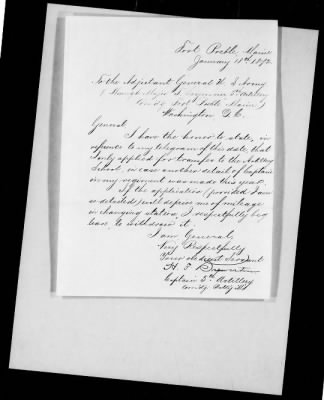 Fort Preble, Maine
January 11th 1872.
To the Adjutant General U. S. Army
(Through Major T. Seymour 5th Artillery
Comdg Fort Preble Maine)
Washington D. C.
General
I have the honor to state, in
reference to my telegram of this date, that
I only applied for transfer to the Artillery
School, in case another detail of Captain
in my regiment was made this year.
If the application, (provided I am
so detailed,) will deprive me of mileage
in changing station, I respectfully beg
leave to withdraw it.
I am General,
Very Respectfully
Your obedient Servant
H. F.
Captain 5th Artillery
Comdg